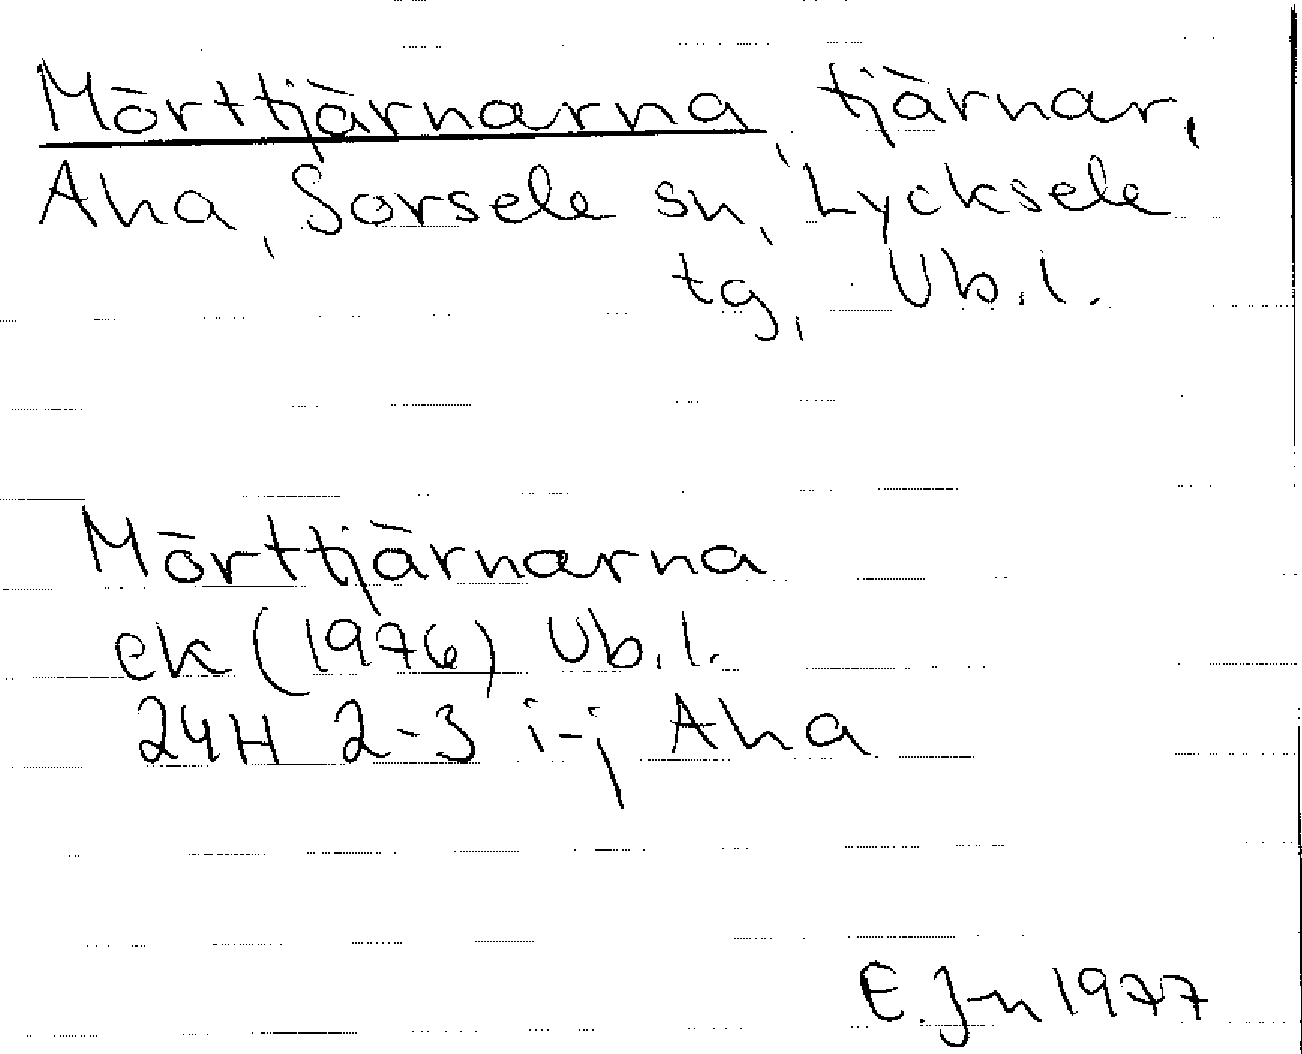 Mörttjärnarna, tjärnar,
Aha, Sorsele sn, Lycksele
tg, Vb.l.
Mörttjärnarna
ek (1976) Vb.l.
24H 2-3 i-j Aha
E. J-n 1977